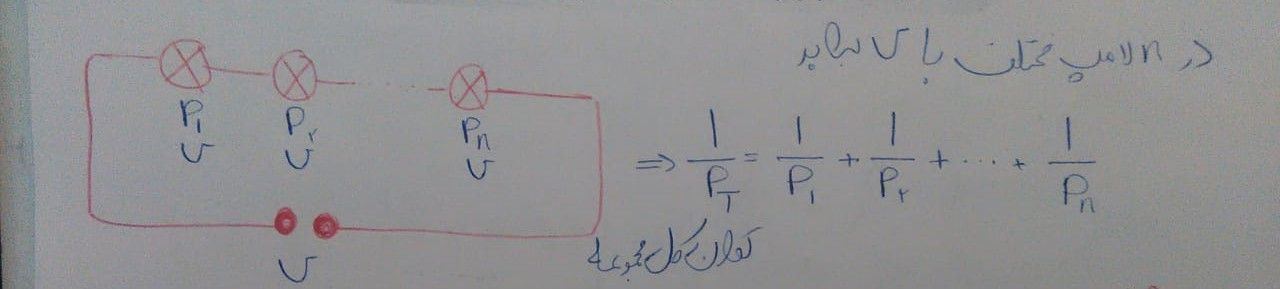 در n لامپ مختلف با V برابر
P₁ P₂ Pₙ
V V V
V
⇒ 1/P_T = 1/P₁ + 1/P₂ + ... + 1/Pₙ
توان کل مجموعه